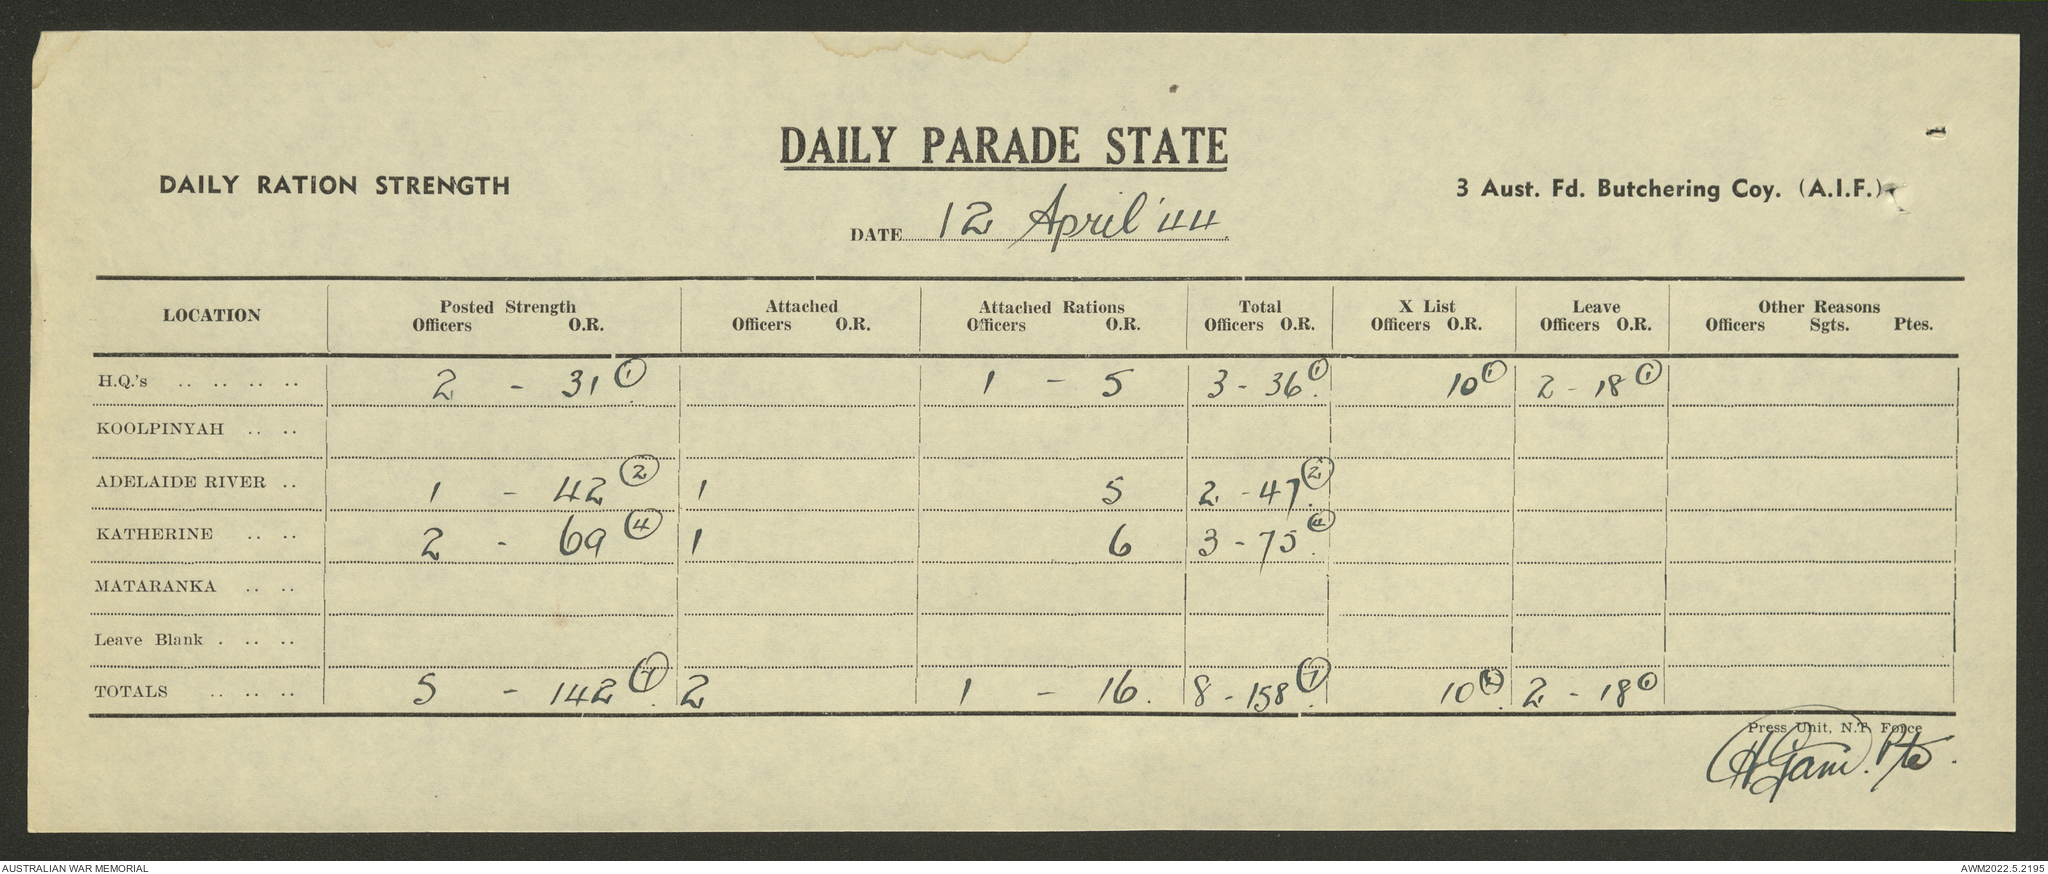 DAILY PARADE STATE
DAILY RATION STRENGTH
3 Aust. Fd. Butchering Coy. (A.I.F.)
DATE 12 April '44
LOCATION Posted Strength Attached Attached Rations Total X List Leave Other Reasons
Officers O.R. Officers O.R. Officers O.R. Officers O.R. Officers O.R. Officers O.R. Officers Sgts. Ptes.
H.Q.'s .. .. .. .. 2 - 31 (1) 1 - 5 3 - 36 (1) 10 (1) 2 - 18 (1)
KOOLPINYAH .. ..
ADELAIDE RIVER .. 1 - 42 (2) 1 5 2 - 47 (2)
KATHERINE .. .. 2 - 69 (4) 1 6 3 - 75 (4)
MATARANKA .. ..
Leave Blank . .. ..
TOTALS .. .. .. 5 - 142 (7) 2 1 - 16. 8 - 158 (7) 10 2 - 18 (1)
Press Unit, N.T. Force
Pte.
AUSTRALIAN WAR MEMORIAL
AWM2022.5.2195